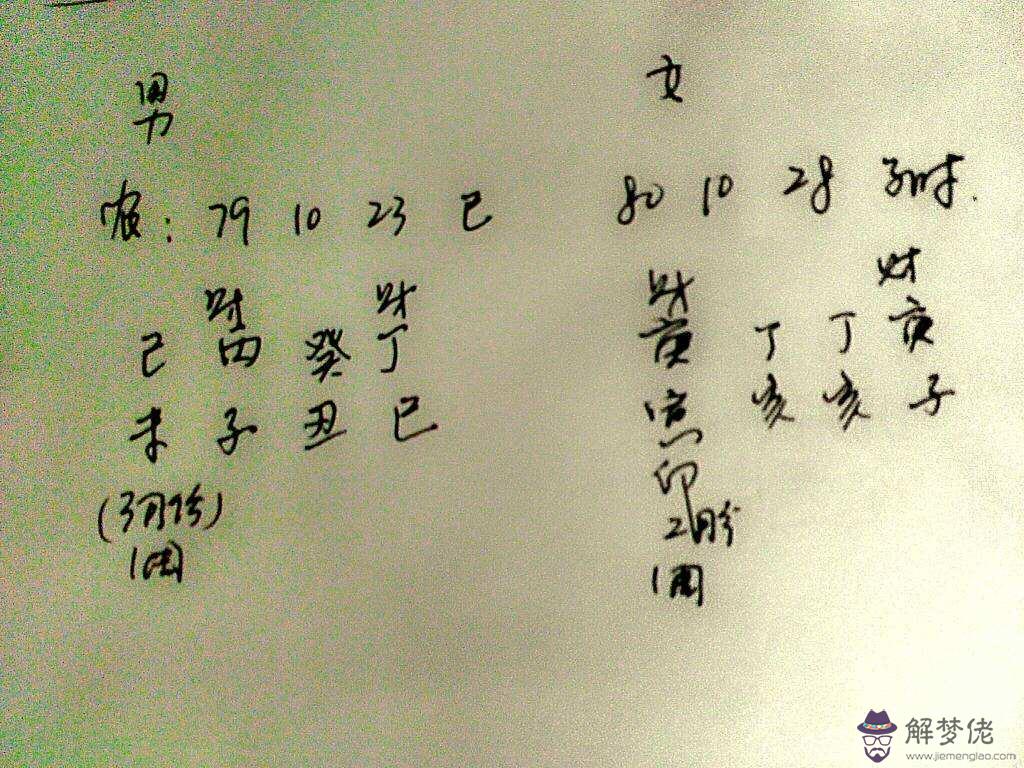 男
农：79 10 23 巳
财 财
己 丙 癸 丁
未 子 丑 巳
(3月份)
1周
女
80 10 28 子时.
财 财
庚 丁 丁 庚
亥 亥 子
印
2月份
1周
解梦佬
www.jiemenglao.com